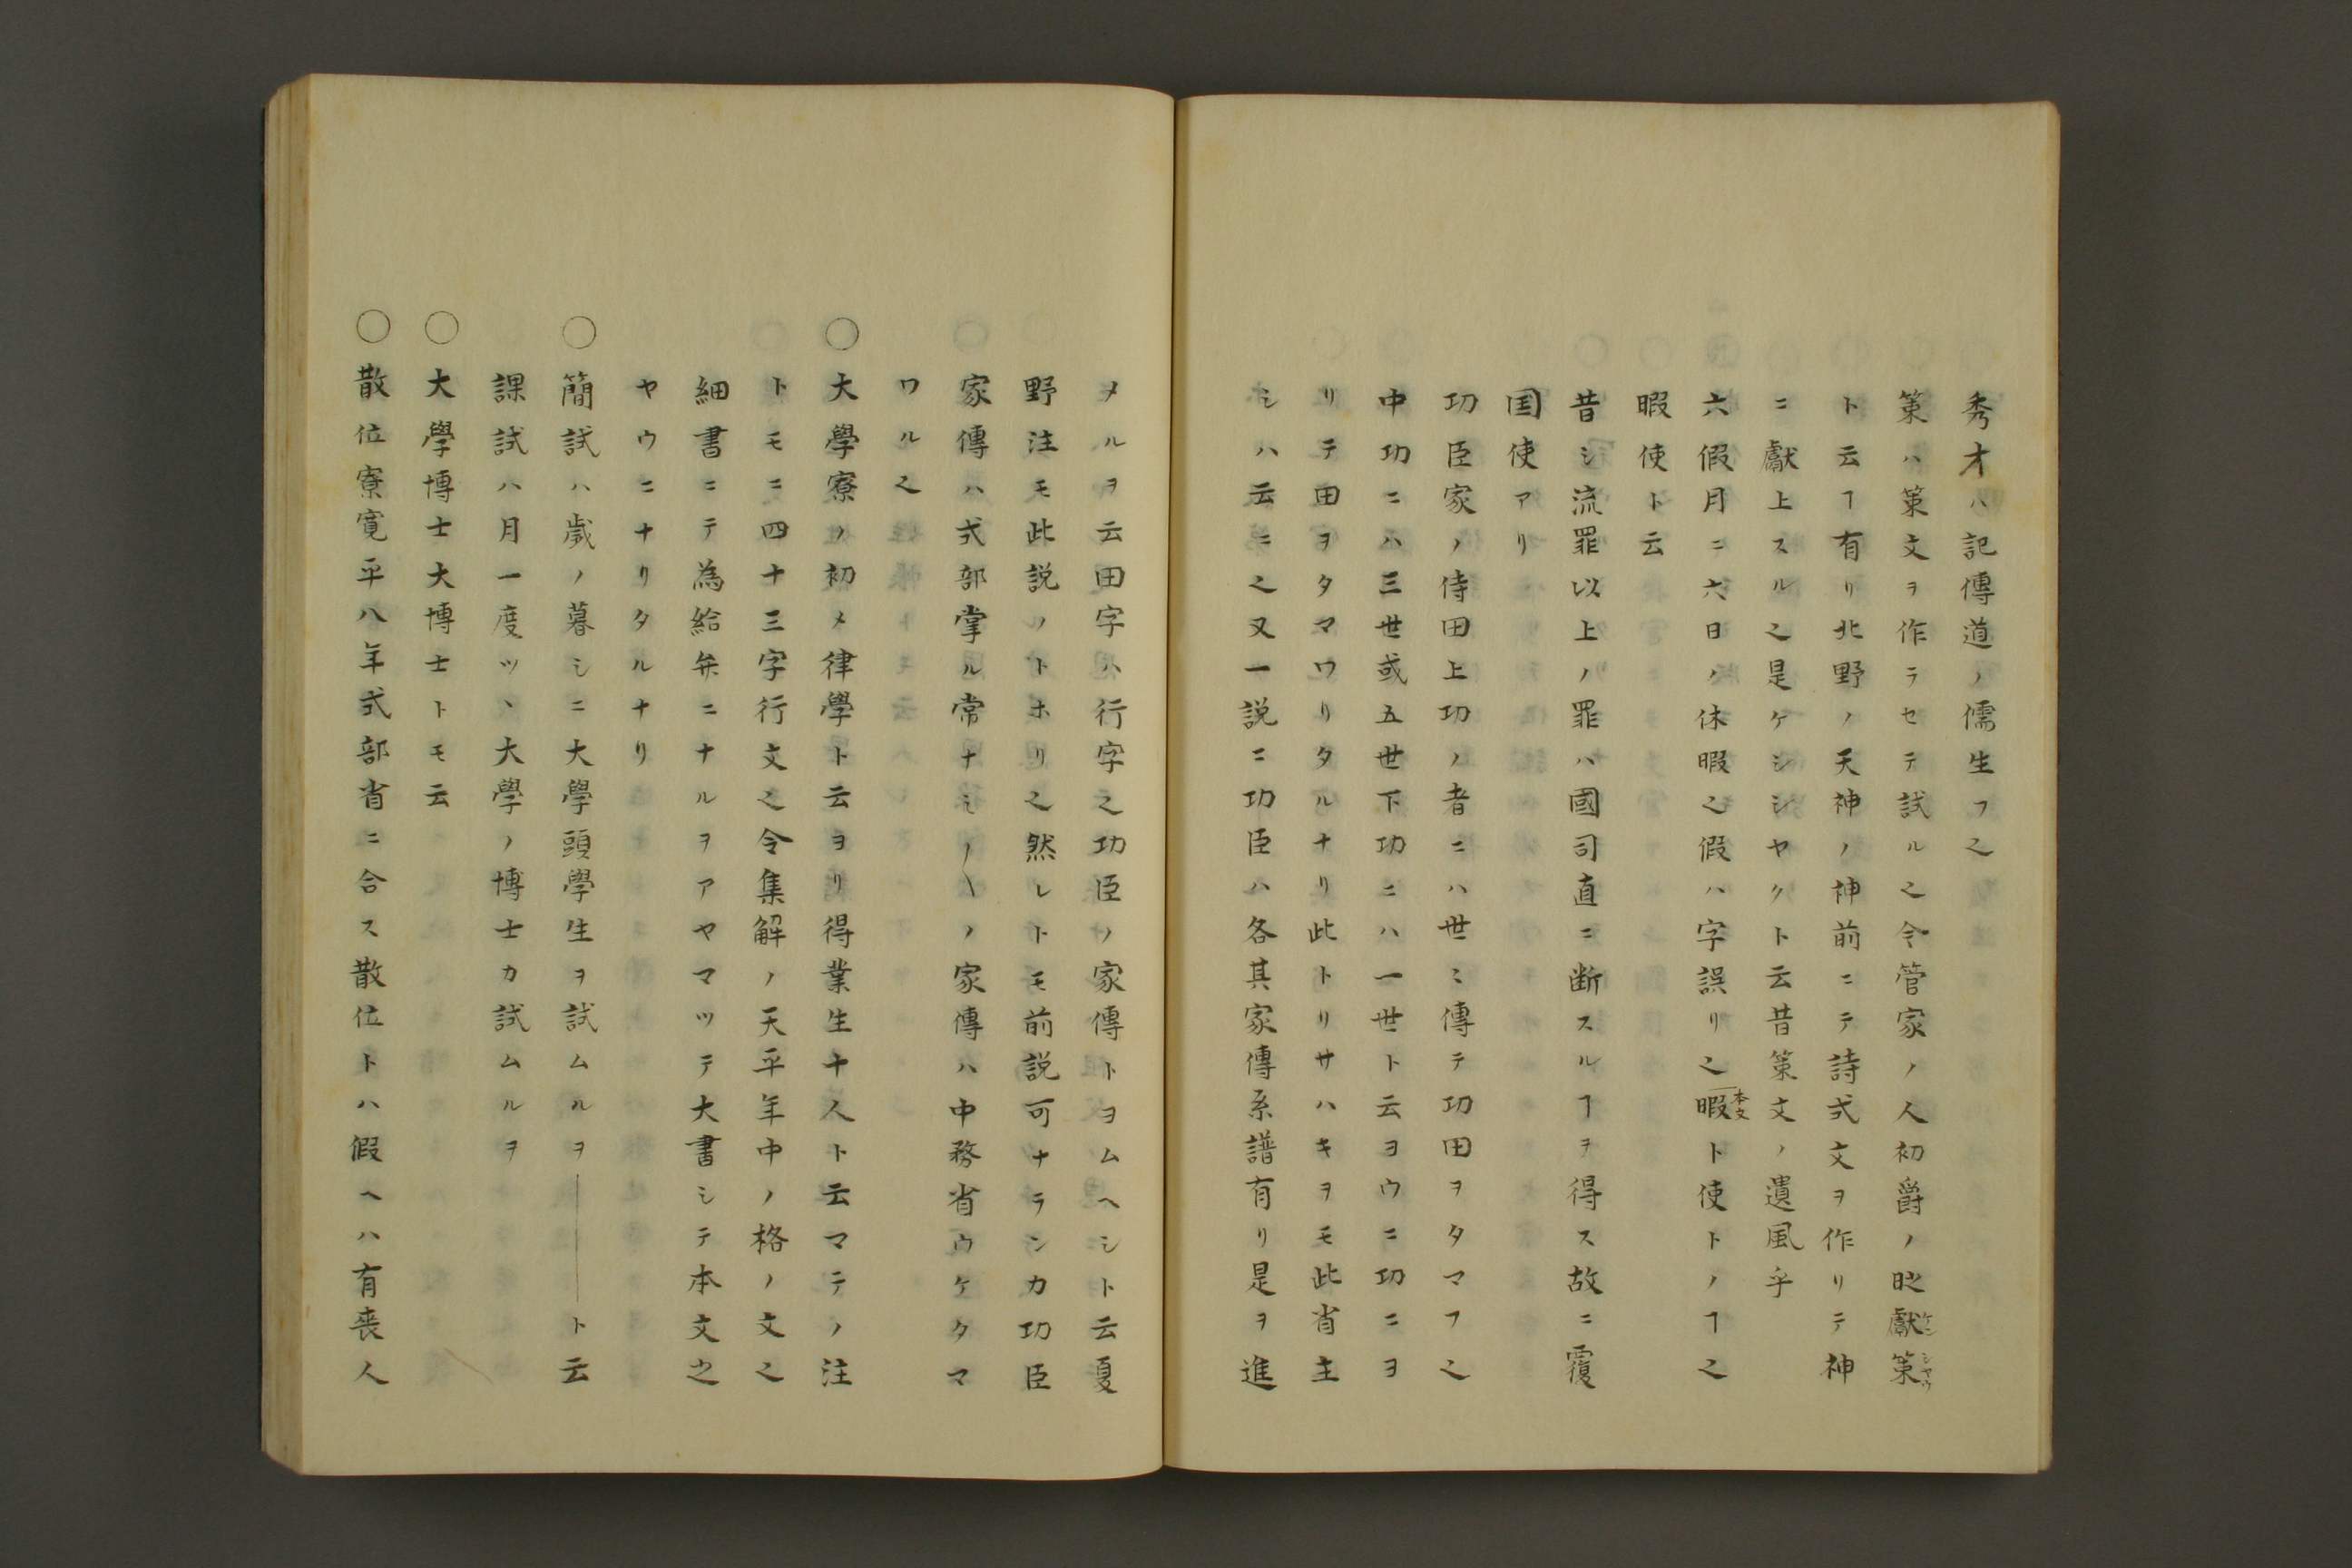 秀才ハ記傳道ノ儒生ヲ之
策ハ策文ヲ作ラセテ試ル之今管家ノ人初爵ノ時獻策
ト云ヿ有リ北野ノ天神ノ神前ニテ詩式文ヲ作リテ神
ニ獻上スル之是ケシシヤクト云昔策文ノ遺風乎
六假月ニ六日ノ休暇之假ハ字誤リ之暇ト使トノヿ之
暇使ト云
昔シ流罪以上ノ罪ハ國司直ニ断スルヿヲ得ス故ニ覆
囯使アリ
功臣家ノ侍田上功ノ者ニハ世〻傳テ功田ヲタマフ之
中功ニハ三世或五世下功ニハ一世ト云ヨウニ功ニヨ
リテ田ヲタマワリタルナリ此トリサハキヲモ此省主
シハ云ニ之又一説ニ功臣ハ各其家傳系譜有リ是ヲ進
メルヲ云田字ハ行字之功臣ノ家傳トヨムヘシト云夏
野注モ此説ノトホリ之然レトモ前説可ナランカ功臣
家傳ハ式部掌ル常ナミノ〳〵ノ家傳ハ中務省ウケタマ
ワル之
○大學寮ノ初メ律學ト云ヨリ得業生十人ト云マテノ注
トモニ四十三字行文之令集解ノ天平年中ノ格ノ文之
細書ニテ為給弁ニナルヲアヤマツテ大書シテ本文之
ヤウニナリタルナリ
○簡試ハ歳ノ暮シニ大學頭學生ヲ試ムルヲ――ト云
課試ハ月一度ツヽ大學ノ博士カ試ムルヲ
○大學博士大博士トモ云
○散位寮寛平八年式部省ニ合ス散位トハ假ヘハ有喪人